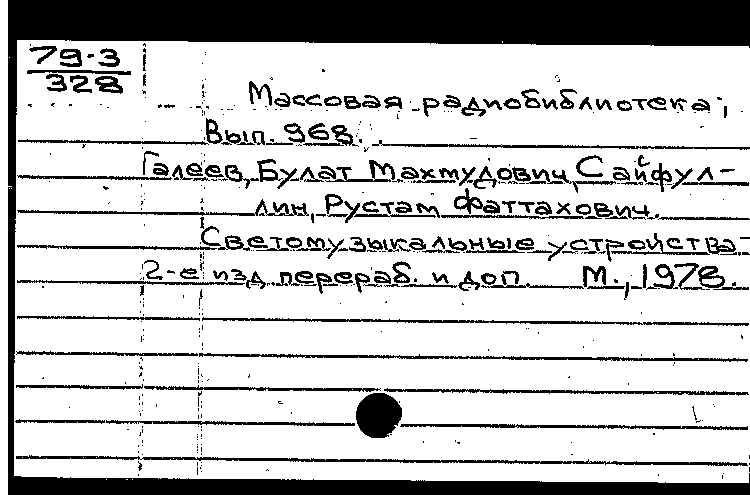 79-3
328
Массовая радиобиблиотека;
Вып. 968.
Галеев, Булат Махмудович, Сайфул-
лин, Рустам Фаттахович.
Светомузыкальные устройства-
2-е изд перераб. и доп. М., 1978.